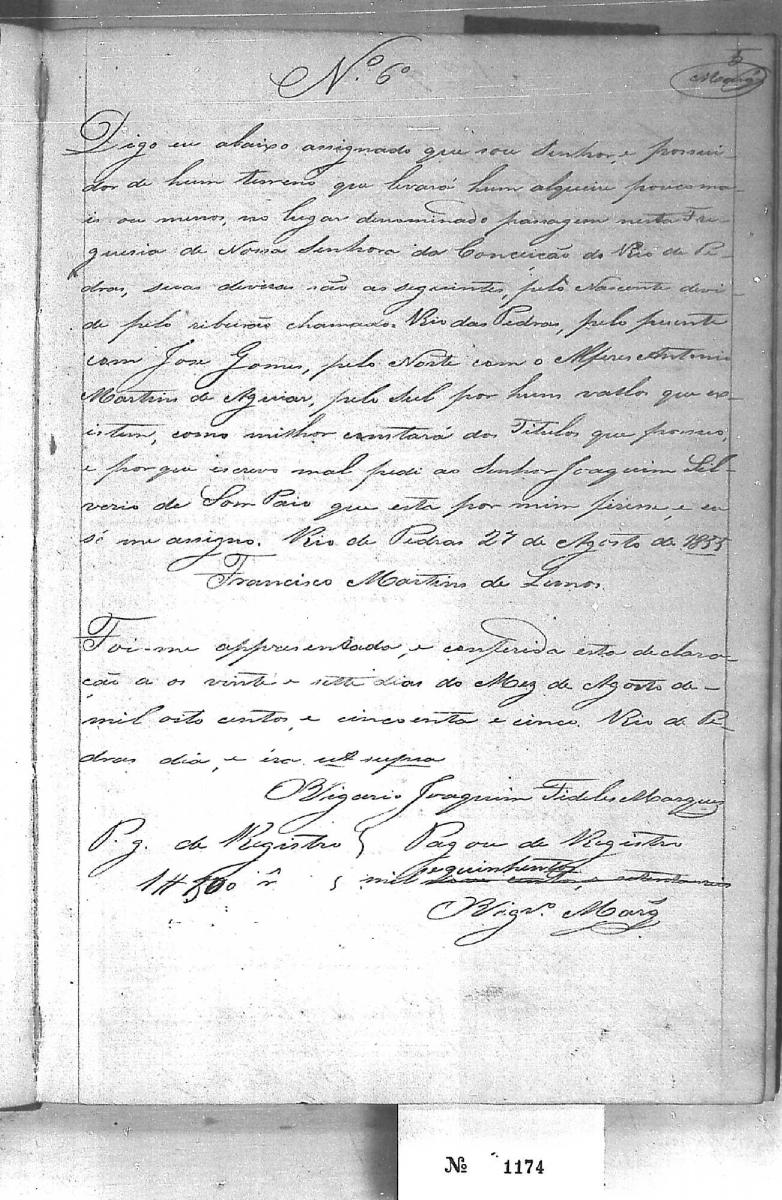 5
Marq
N.o 6o
Digo eu abaixo assignado que sou Senhor, e possui-
dor de hum terreno que levará hum alqueire pouco ma-
is ou menos, no lugar denominado passagem nesta Fre-
guesia de Nossa Senhora da Conceição do Rio de Pe-
dras, suas devizas são as seguintes, pelo Nascente devi-
de pelo ribeirão chamado Rio das Pedras, pelo puente
com Jose Gomes, pelo Norte com o Alferes Antonio
Martins de Aguiar, pelo Sul por hum vallos que ex-
istem, como milhor constará dos Titulos que possuo,
e por que escrevo mal pedi ao Senhor Joaquim Sil-
verio de Som Paio que esta por mim fizesse, e eu
só me assigno. Rio de Pedras 27 de Agosto de 1855
Francisco Martins de Lemos.
Foi-me appresentada, e conferida esta declara-
ção a os vinte e sette dias do Mez de Agosto de
mil oito centos, e cincoenta e cinco. Rio de Pe-
dras dia, e éra ut supra
O Vigario Joaquim Fidelis Marques
P.g. de Registro } Pagou de Registro
seguinhentos
1#500 r } mil
O Vigr.o Marq
No 1174